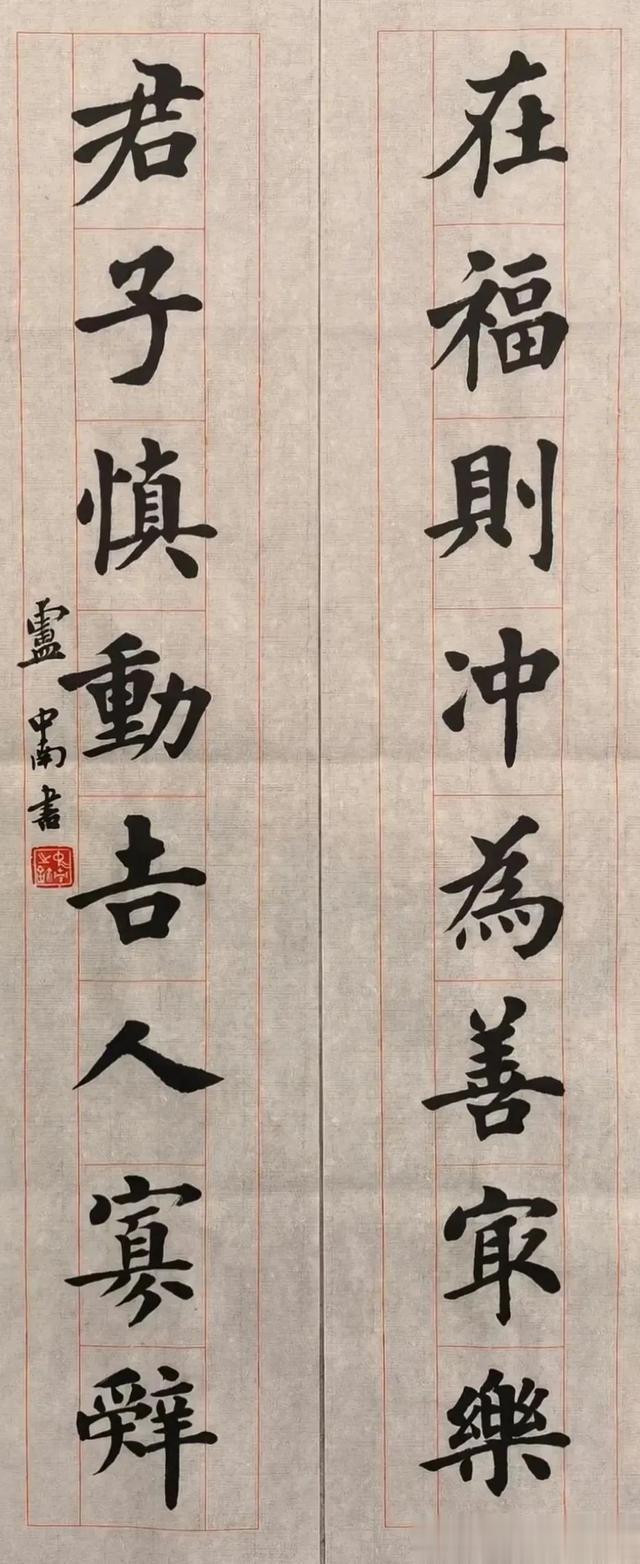 在福則冲為善冣樂
君子慎動吉人寡辭
盧中南書